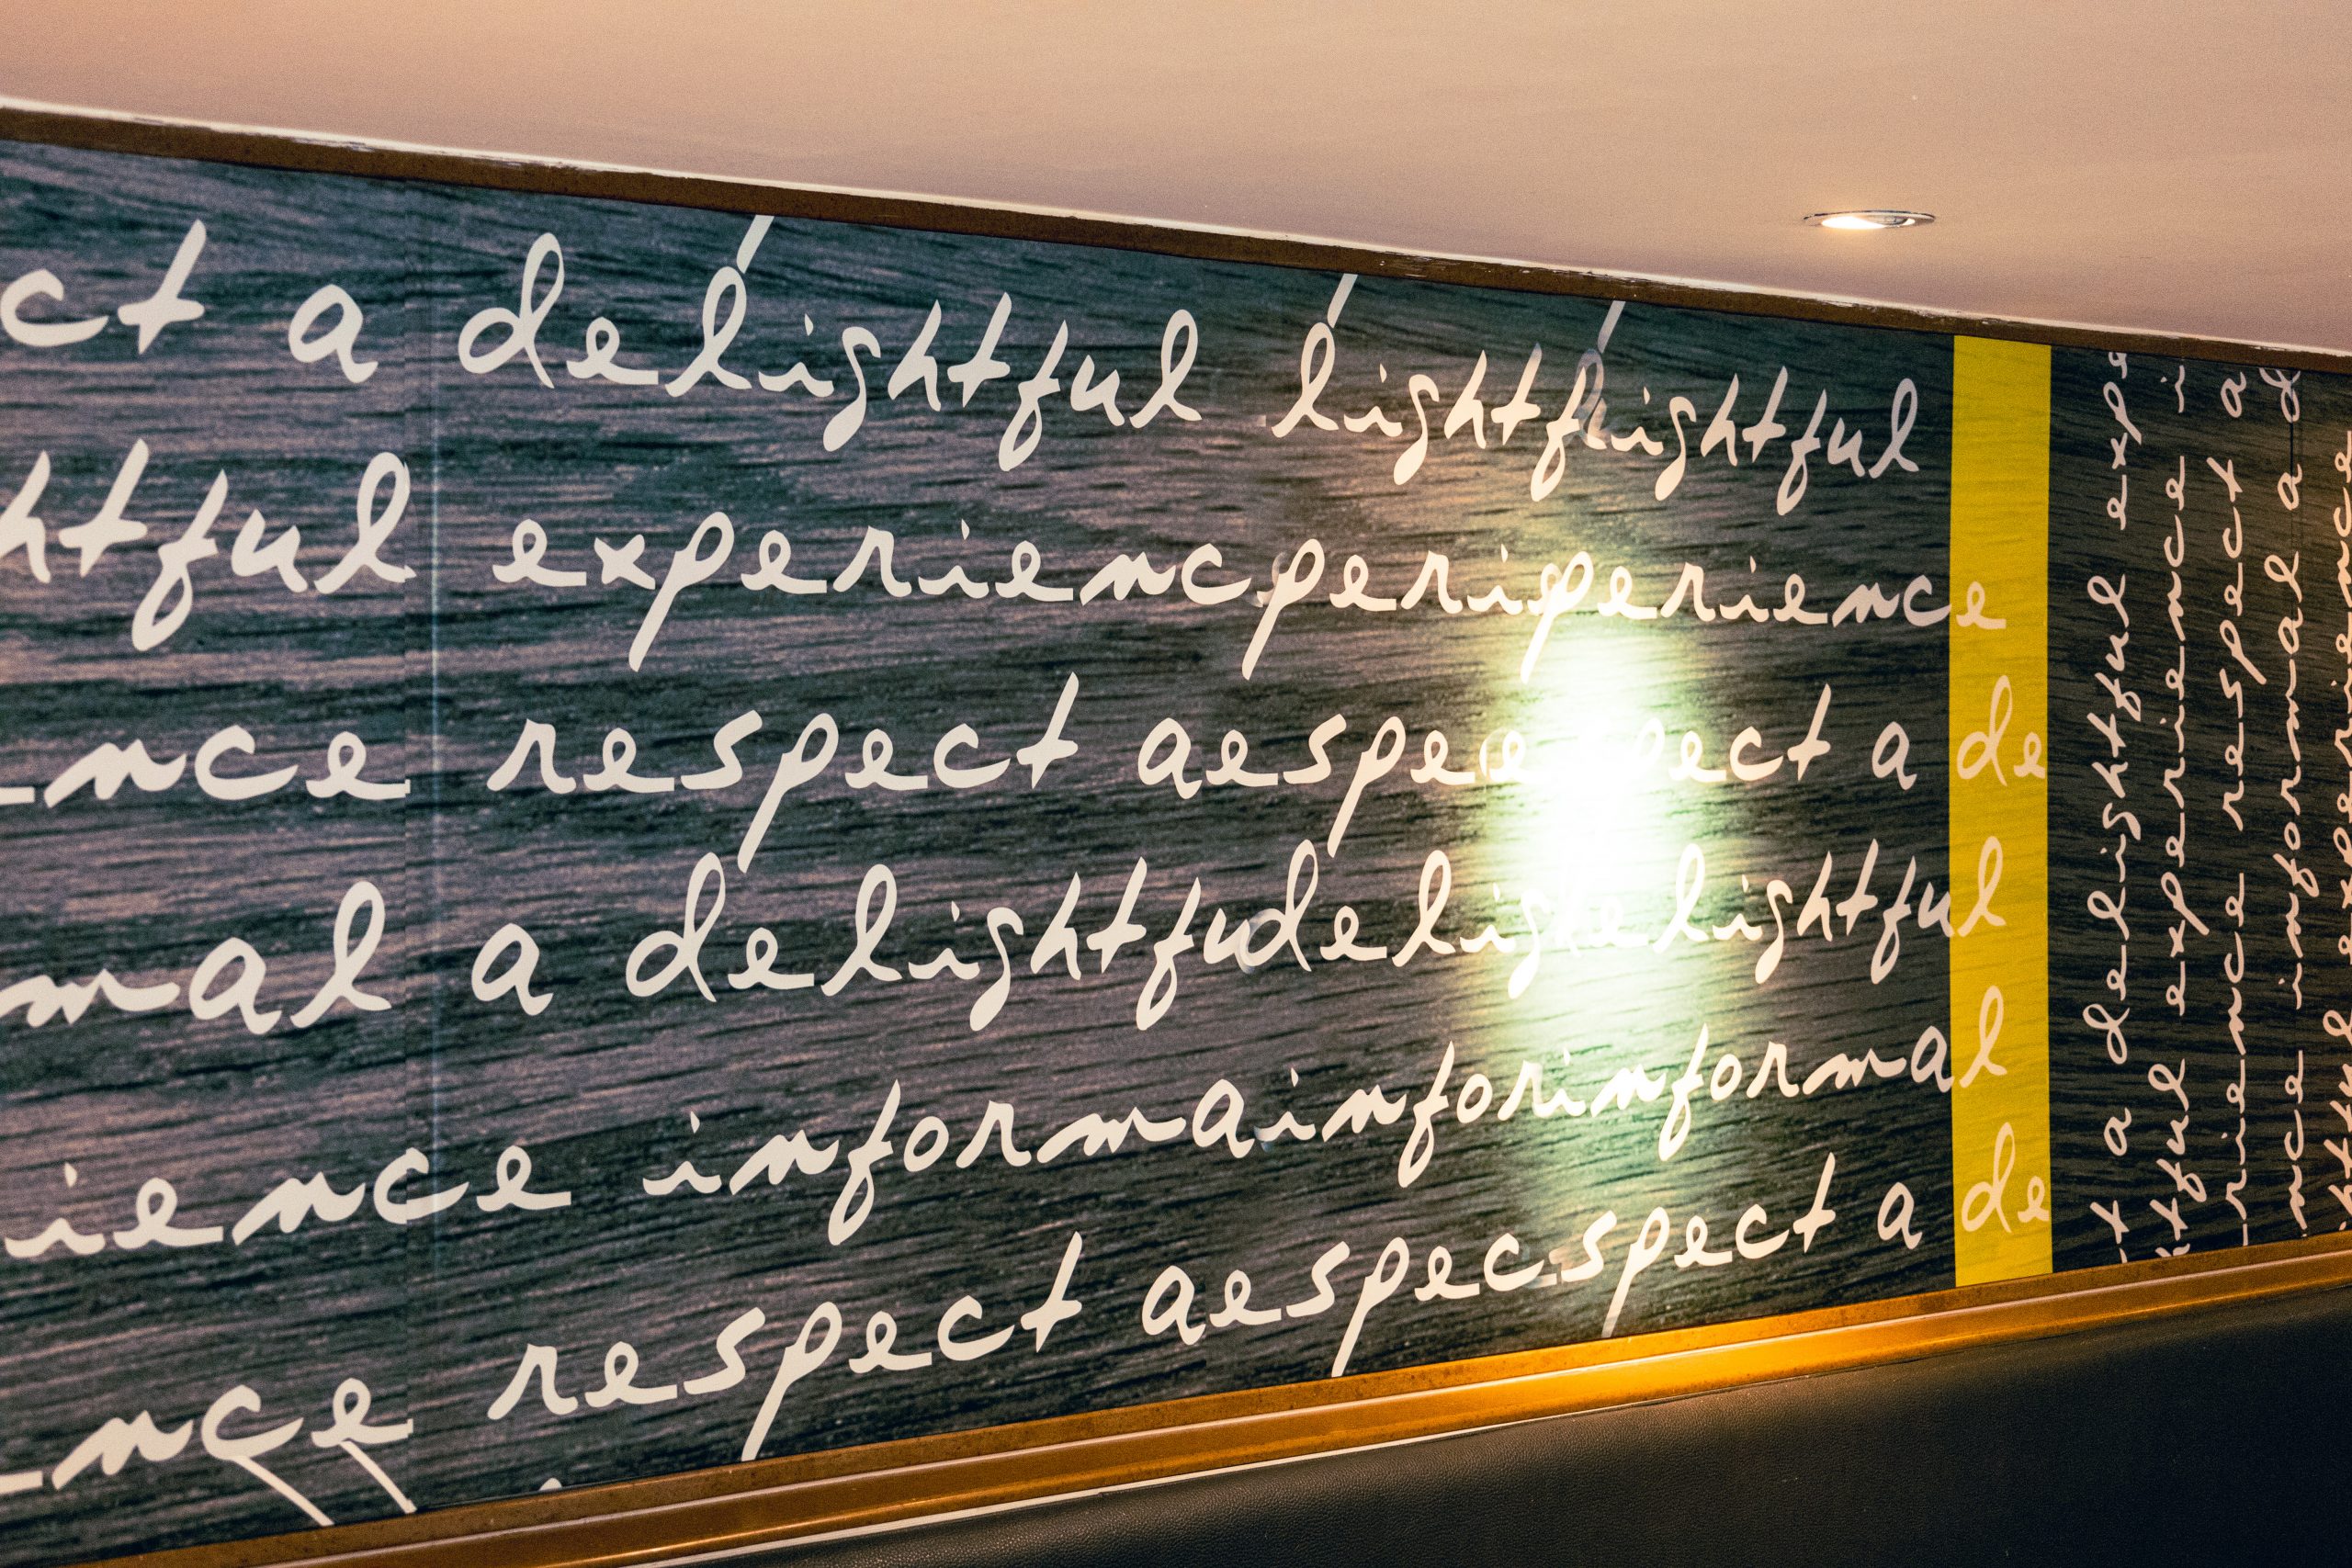 ct a delightful lightflightful
htful experiencperiperience
ence respect aespee pect a de
mal a delightfudeligh elightful
ience informainforinformal
ence respect aespecspect a de
t a delightful expe
htful experience i
rience respect a
nce informal a d